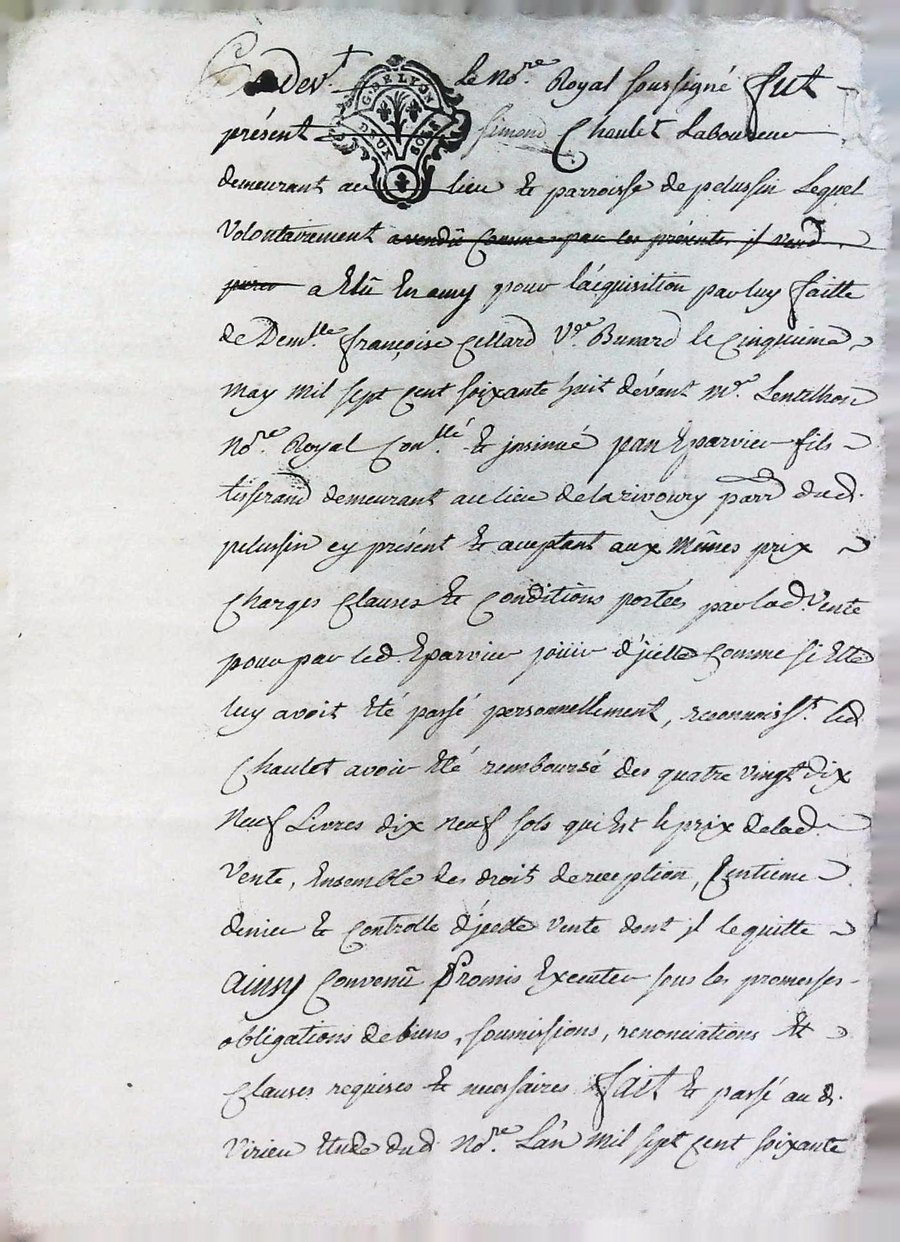 Pardev.t le No.re Royal soussigné fut
G. DE LYON
DEUX SOLS
présent Simond Chaulet Laboureur
demeurant au lieu & parroisse de pelussin Lequel
Volontairement a vendû comme par les présentes il vend
a Elû En amy pour l'acquisition par luy faitte
de Dem.lle françoise Cellard V.ve Bunard le Cinquieme
may mil sept cent soixante huit dévant m.e Lentilhon
No.re Royal Con.llé & insinué jean Eparvier fils
tisserand demeurant au lieu de la rivoiry parr dud.
pelussin cy présent & aceptant aux mêmes prix
Charges Clauses & Conditions portées par lad. Vente
pour par led. Eparvier joüir d'jcelle Comme si Elle
luy avoit Eté passé personnellement, reconnoiss.t led
Chaulet avoir Eté remboursé des quatre vingt dix
Neuf Livres dix neuf sols qui Est le prix de lad
Vente, Ensemble des droit de reception, Centieme
denier & Controlle d'jcelle Vente dont jl le quitte
Ainsy Convenû Promis Executer sous les promesses
obligations de biens, soumissions, renonciations Et
Clauses requises & necessaires fait & passé au d.
Virieu Etude dud No.re L'an mil sept cent soixante